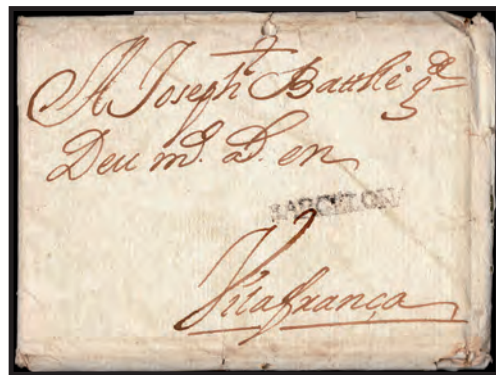 A Joseph Battlle
Deu md. D. en
BARCELONA
Vilafranca